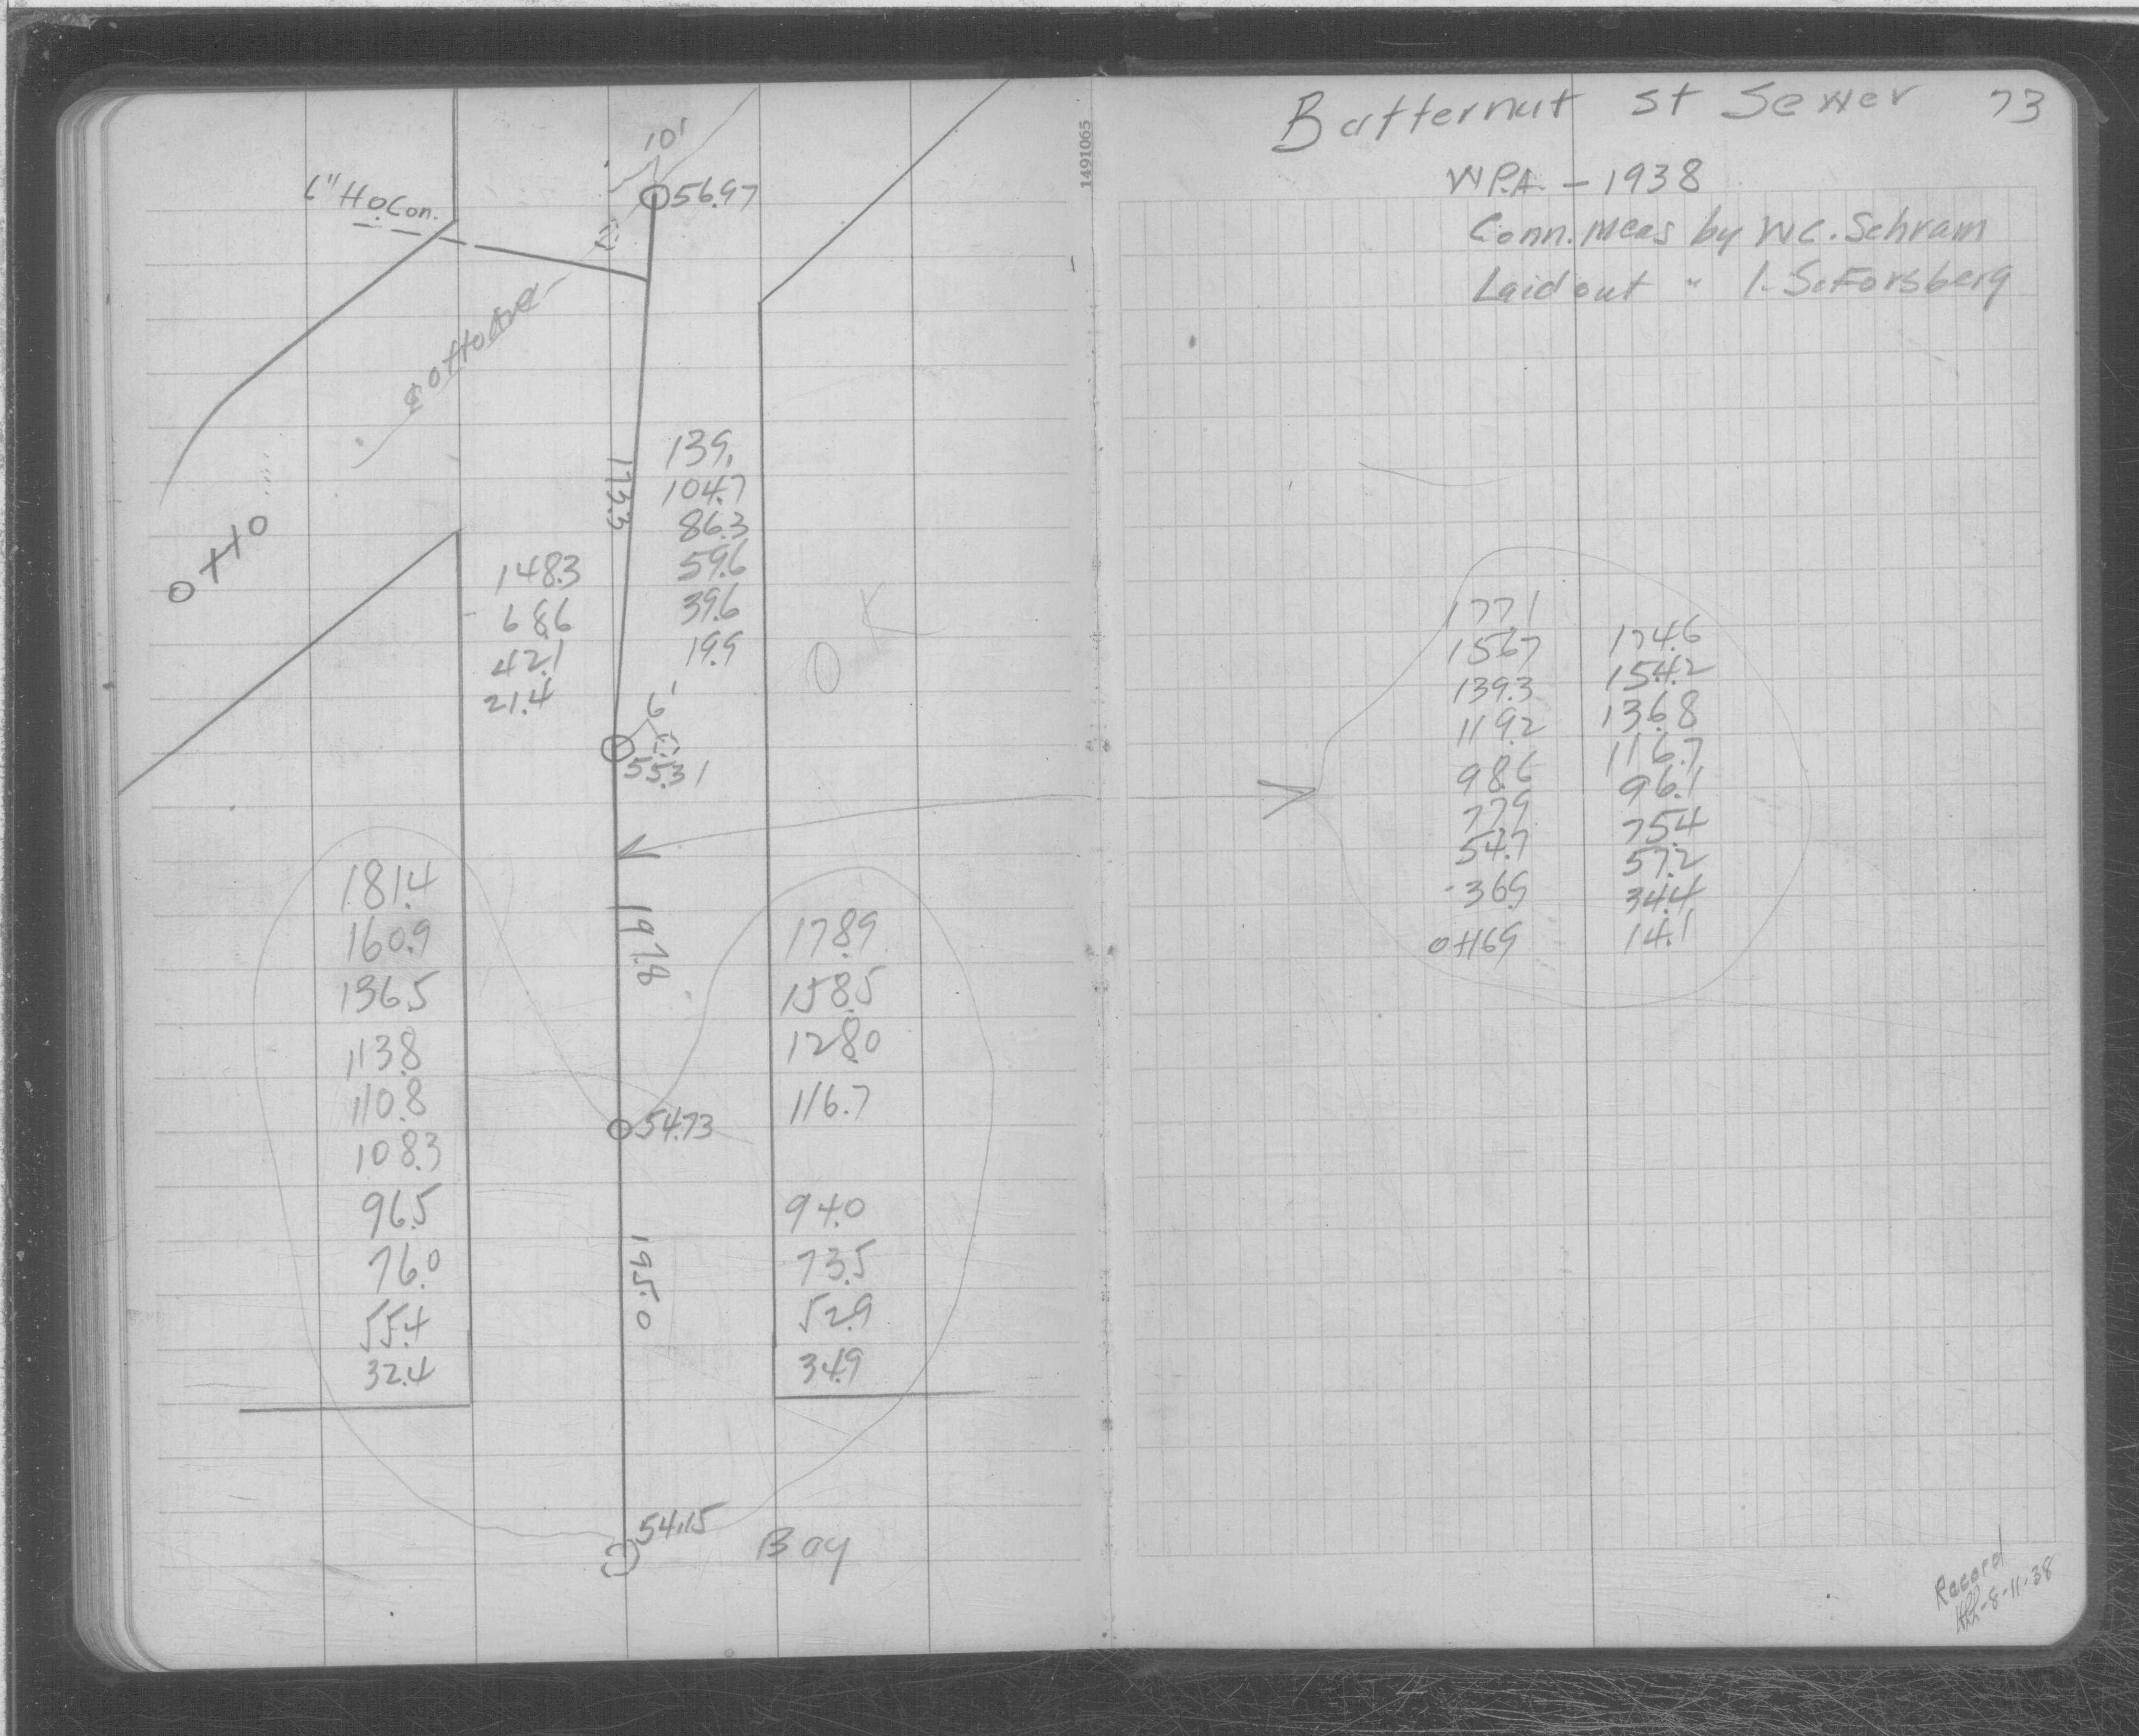 10'
56.97
6" Ho.Con.
℄ Otto Ave
139.
104.7
86.3
59.6
39.6
19.9
173.3
Otto
148.3
68.6
42.1
21.4
OK
6'
55.31
181.4
160.9
136.5
113.8
110.8
108.3
96.5
76.0
55.4
32.4
197.8
178.9
158.5
128.0
116.7
94.0
73.5
52.9
34.9
54.73
195.0
54.15
Bay
1491065
Butternut St Sewer 73
W.P.A. - 1938
Conn. Meas by W.C. Schram
Laid out " I. S. Forsberg
177.1
156.7 174.6
139.3 154.2
119.2 136.8
98.6 116.7
77.9 96.1
54.7 75.4
36.9 57.2
0+16.9 34.4
14.1
Record
8-11-38